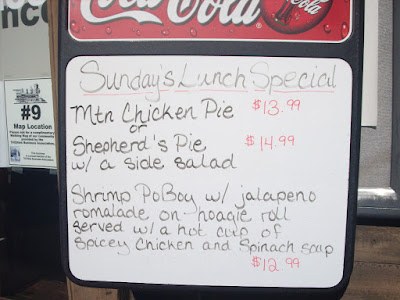 Coca-Cola
Cola
#9
Map Location
Sunday's Lunch Special
Mtn Chicken Pie $13.99
or
Shepherd's Pie $14.99
w/ a side salad
Shrimp PoBoy w/ jalapeno
romalade on hoagie roll
served w/ a hot cup of
Spicey Chicken and Spinach soup
$12.99